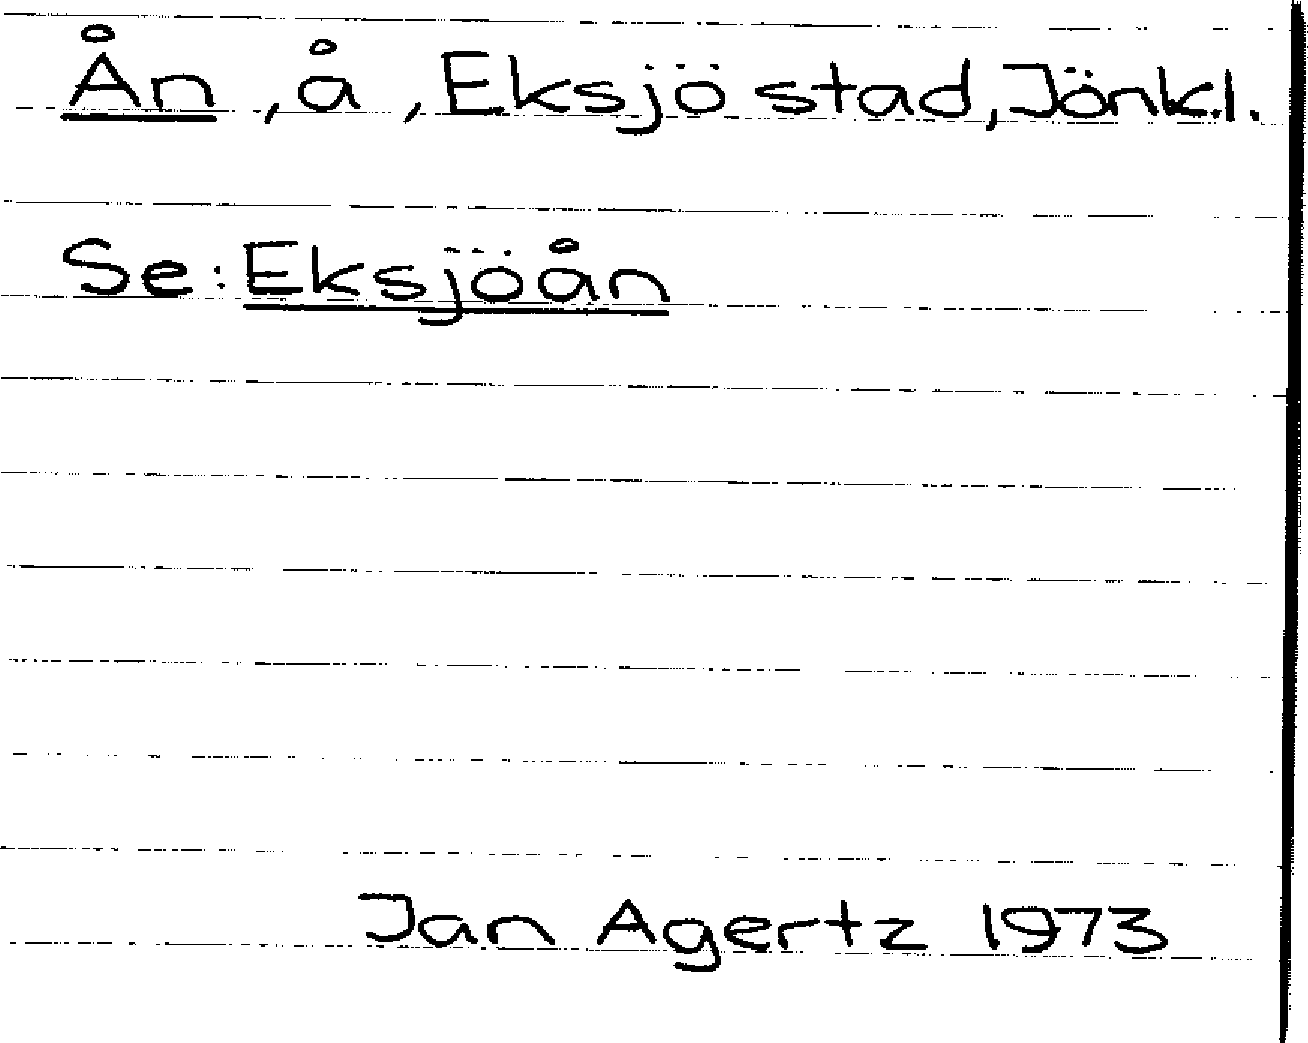 Ån, å, Eksjö stad, Jönk.l.
Se: Eksjöån
Jan Agertz 1973